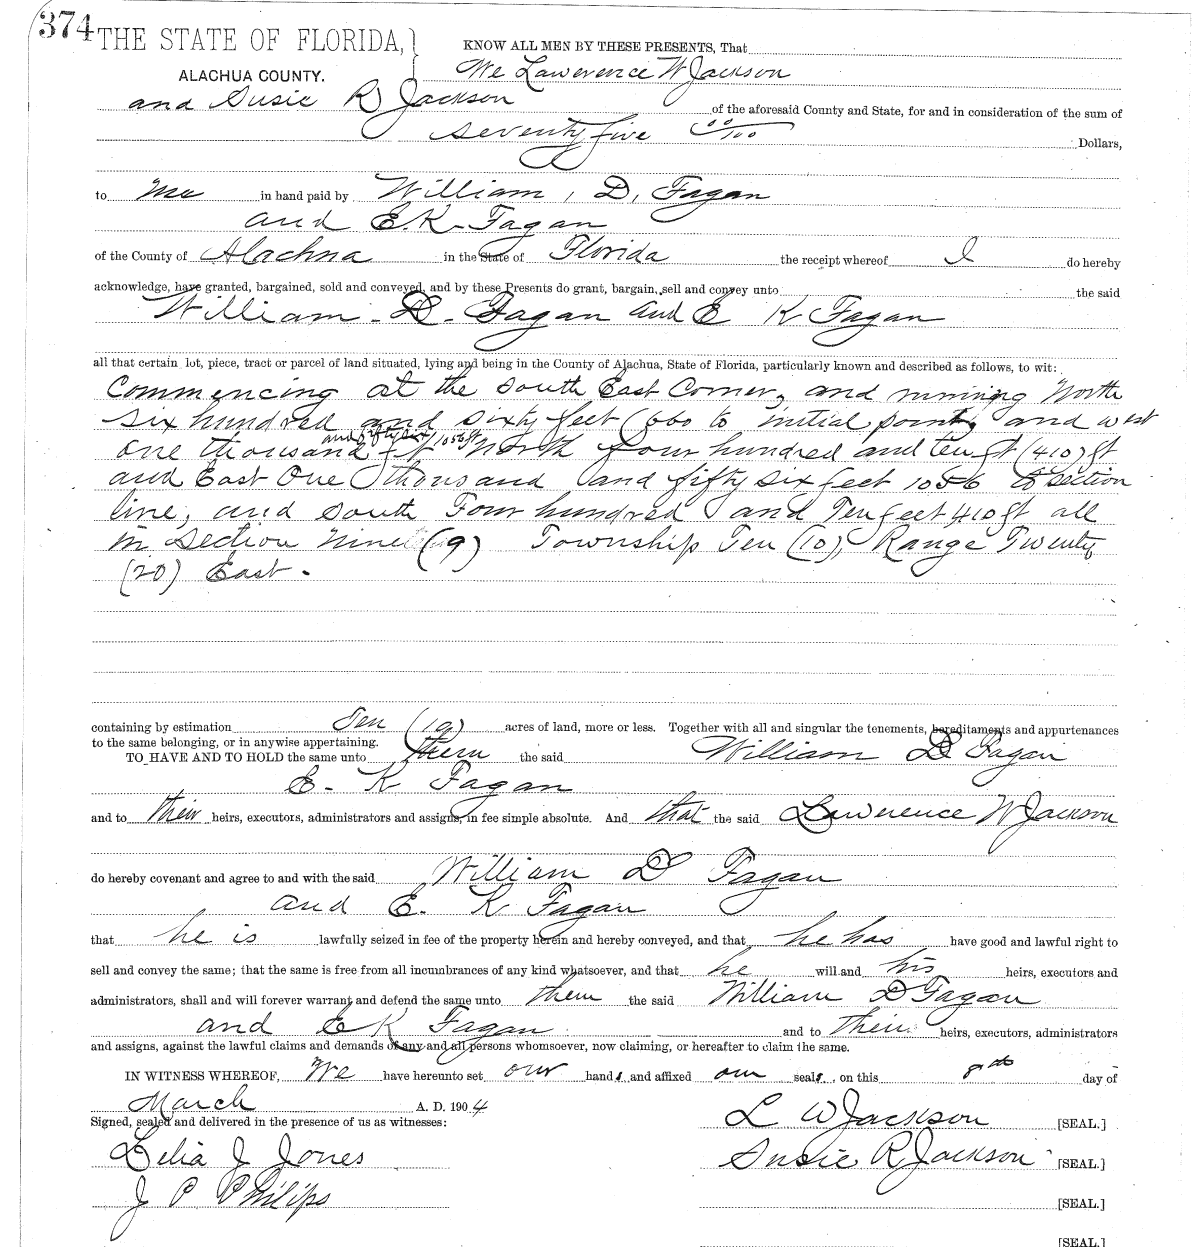 374 THE STATE OF FLORIDA,
ALACHUA COUNTY.
KNOW ALL MEN BY THESE PRESENTS, That
We Lawerence W Jackson
and Susie R Jackson of the aforesaid County and State, for and in consideration of the sum of
seventy five 00/100 Dollars,
to me in hand paid by William, D, Fagan
and E. K. Fagan
of the County of Alachua in the State of Florida the receipt whereof I do hereby
acknowledge, have granted, bargained, sold and conveyed, and by these Presents do grant, bargain, sell and convey unto the said
William. D. Fagan and E K Fagan
all that certain lot, piece, tract or parcel of land situated, lying and being in the County of Alachua, State of Florida, particularly known and described as follows, to wit:
Commencing at the south East Corner, and running North
six hundred and sixty feet (660 to initial point, and west
and fifty six 1056 ft
one thousand ft North four hundred and ten ft (410) ft
and East One thousand and fifty six feet 1056 to section
line, and south Four hundred and Ten feet 410 ft all
in section nine (9) Township Ten (10), Range Twenty
(20) East.
containing by estimation Ten (10) acres of land, more or less. Together with all and singular the tenements, hereditaments and appurtenances
to the same belonging, or in anywise appertaining.
TO HAVE AND TO HOLD the same unto them the said William D Fagan
E. K Fagan
and to their heirs, executors, administrators and assigns, in fee simple absolute. And that the said Lawerence W Jackson
do hereby covenant and agree to and with the said William D Fagan
and E. K Fagan
that he is lawfully seized in fee of the property herein and hereby conveyed, and that he has have good and lawful right to
sell and convey the same; that the same is free from all incumbrances of any kind whatsoever, and that he will and his heirs, executors and
administrators, shall and will forever warrant and defend the same unto them the said William D Fagan
and E K Fagan and to their heirs, executors, administrators
and assigns, against the lawful claims and demands of any and all persons whomsoever, now claiming, or hereafter to claim the same.
IN WITNESS WHEREOF, We have hereunto set our hands and affixed our seals, on this day of
March A. D. 1904
Signed, sealed and delivered in the presence of us as witnesses:
L W Jackson [SEAL.]
Lelia J Jones
Susie R Jackson [SEAL.]
J P Philips
[SEAL.]
[SEAL.]